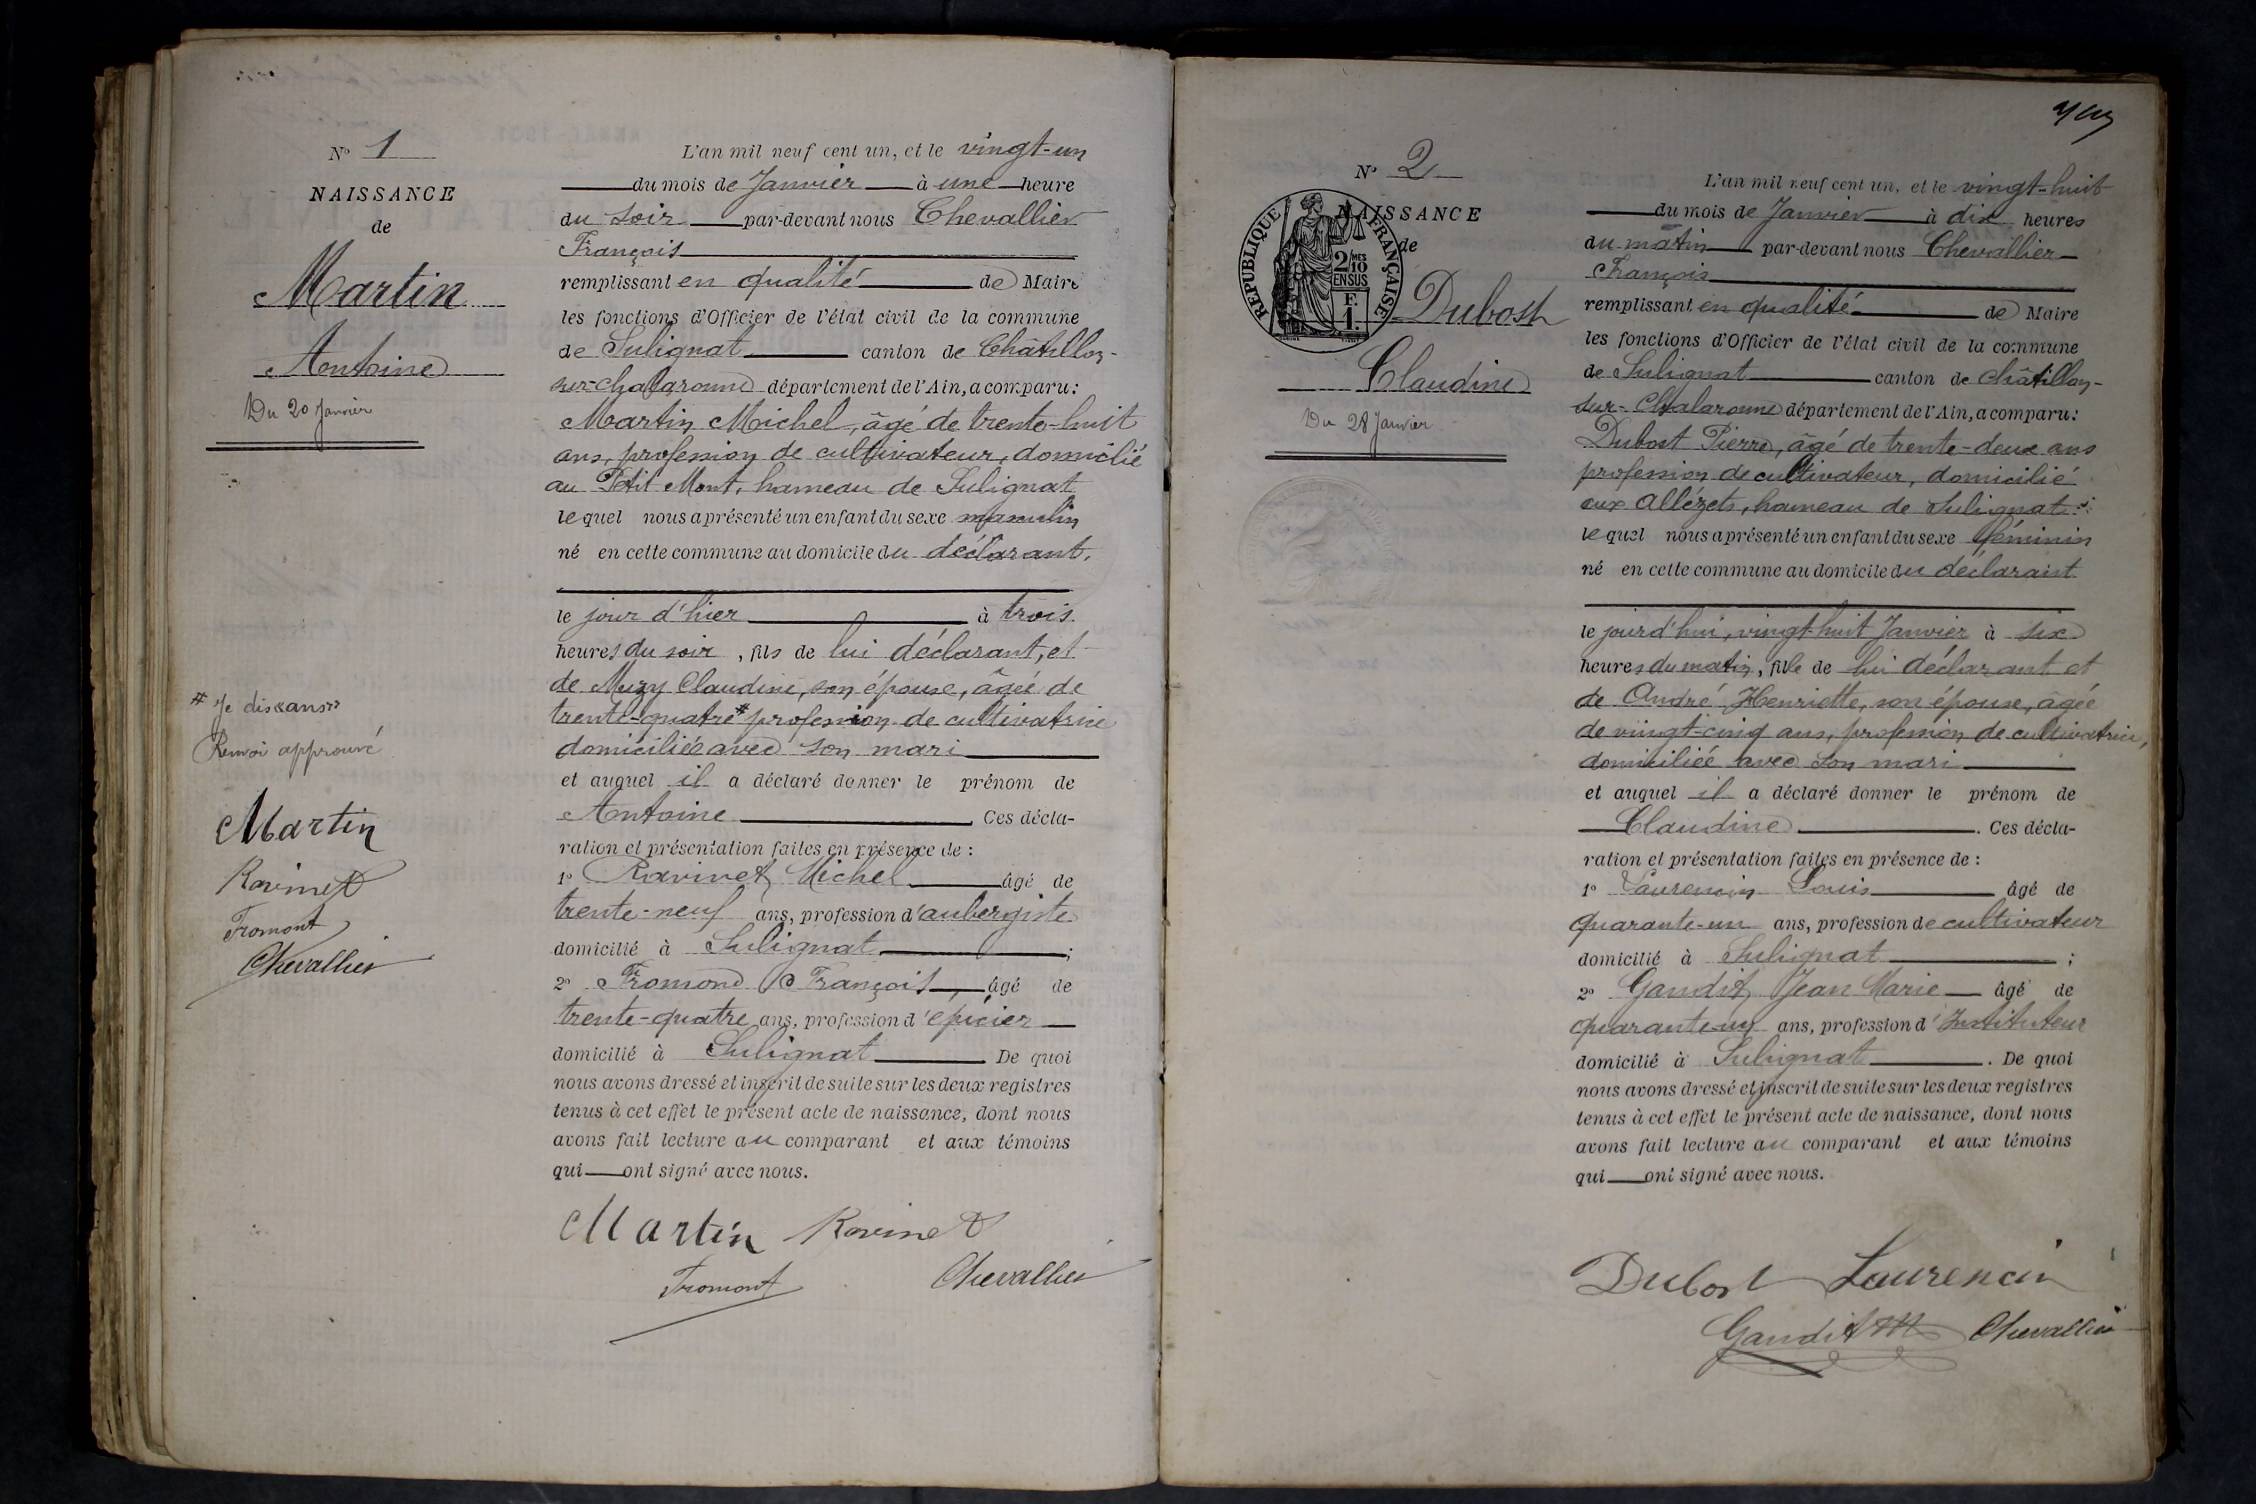 N° 1
NAISSANCE
de
Martin
Antoine
Du 20 Janvier
# Je dis « ans »
Renvoi approuvé
Martin
Ravinet
Fromont
Chevallier
L'an mil neuf cent un, et le vingt-un
du mois de Janvier à une heure
du soir par-devant nous Chevallier
François
remplissant en qualité de Maire
les fonctions d'Officier de l'état civil de la commune
de Sulignat canton de Châtillon-
sur-Chalaronne département de l'Ain, a comparu:
Martin Michel, âgé de trente-huit
ans, profession de cultivateur, domicilié
au Petit Mont, hameau de Sulignat
lequel nous a présenté un enfant du sexe masculin
né en cette commune au domicile du déclarant.
le jour d'hier à trois
heures du soir, fils de lui déclarant, et
de Muzy Claudine, son épouse, âgée de
trente-quatre # profession de cultivatrice
domiciliée avec son mari
et auquel il a déclaré donner le prénom de
Antoine Ces décla-
ration et présentation faites en présence de :
1° Ravinet Michel âgé de
trente-neuf ans, profession d'aubergiste
domicilié à Sulignat ;
2° Fromond François, âgé de
trente-quatre ans, profession d'épicier
domicilié à Sulignat De quoi
nous avons dressé et inscrit de suite sur les deux registres
tenus à cet effet le présent acte de naissance, dont nous
avons fait lecture au comparant et aux témoins
qui ont signé avec nous.
Martin Ravinet
Fromont Chevallier
N° 2
NAISSANCE
de
REPUBLIQUE FRANÇAISE
2 MES
10
EN SUS
F.
1.
Dubost
Claudine
Du 28 Janvier
L'an mil neuf cent un, et le vingt-huit
du mois de Janvier à dix heures
du matin par-devant nous Chevallier
François
remplissant en qualité de Maire
les fonctions d'Officier de l'état civil de la commune
de Sulignat canton de Châtillon-
sur-Chalaronne département de l'Ain, a comparu:
Dubost Pierre, âgé de trente-deux ans
profession de cultivateur, domicilié
aux Allézets, hameau de Sulignat
lequel nous a présenté un enfant du sexe féminin
né en cette commune au domicile du déclarant
le jourd'hui, vingt-huit Janvier à six
heures du matin, fille de lui déclarant et
de André Henriette, son épouse, âgée
de vingt-cinq ans, profession de cultivatrice,
domiciliée avec son mari
et auquel il a déclaré donner le prénom de
Claudine. Ces décla-
ration et présentation faites en présence de :
1° Laurencin Louis âgé de
quarante-un ans, profession de cultivateur
domicilié à Sulignat ;
2° Gaudit Jean Marie âgé de
quarante-un ans, profession d'Instituteur
domicilié à Sulignat. De quoi
nous avons dressé et inscrit de suite sur les deux registres
tenus à cet effet le présent acte de naissance, dont nous
avons fait lecture au comparant et aux témoins
qui ont signé avec nous.
Dubost Laurencin
Gaudit JM Chevallier